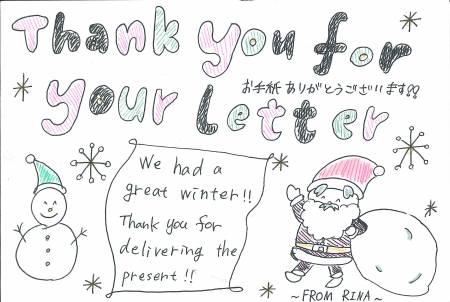 Thank you for
your Letter
お手紙ありがとうございます!!
We had a
great winter!!
Thank you for
delivering the
present!!
~FROM RINA~